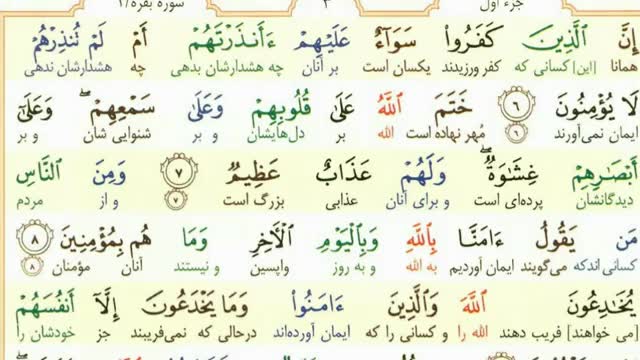 جزء اول ۳ سوره بقره/۲
إِنَّ ٱلَّذِينَ كَفَرُوا۟ سَوَآءٌ عَلَيْهِمْ ءَأَنذَرْتَهُمْ أَمْ لَمْ تُنذِرْهُمْ
همانا [این] کسانی که کفر ورزیدند یکسان است بر آنان چه هشدارشان بدهی چه هشدارشان ندهی
لَا يُؤْمِنُونَ ۶ خَتَمَ ٱللَّهُ عَلَىٰ قُلُوبِهِمْ وَعَلَىٰ سَمْعِهِمْ ۖ وَعَلَىٰٓ
ایمان نمی‌آورند ۶ مُهر نهاده است الله بر دل‌هایشان و بر شنوایی شان و بر
أَبْصَـٰرِهِمْ غِشَـٰوَةٌ ۖ وَلَهُمْ عَذَابٌ عَظِيمٌ ۷ وَمِنَ ٱلنَّاسِ
دیدگانشان پرده‌ای است و برای آنان عذابی بزرگ است ۷ و از مردم
مَن يَقُولُ ءَامَنَّا بِٱللَّهِ وَبِٱلْيَوْمِ ٱلْأَخِرِ وَمَا هُم بِمُؤْمِنِينَ ۸
کسانی اندکه می‌گویند ایمان آوردیم به الله و به روز واپسین و نیستند آنان مؤمنان ۸
يُخَـٰدِعُونَ ٱللَّهَ وَٱلَّذِينَ ءَامَنُوا۟ وَمَا يَخْدَعُونَ إِلَّآ أَنفُسَهُمْ
[می خواهند] فریب دهند الله را و کسانی را که ایمان آورده‌اند درحالی که نمی‌فریبند جز خودشان را